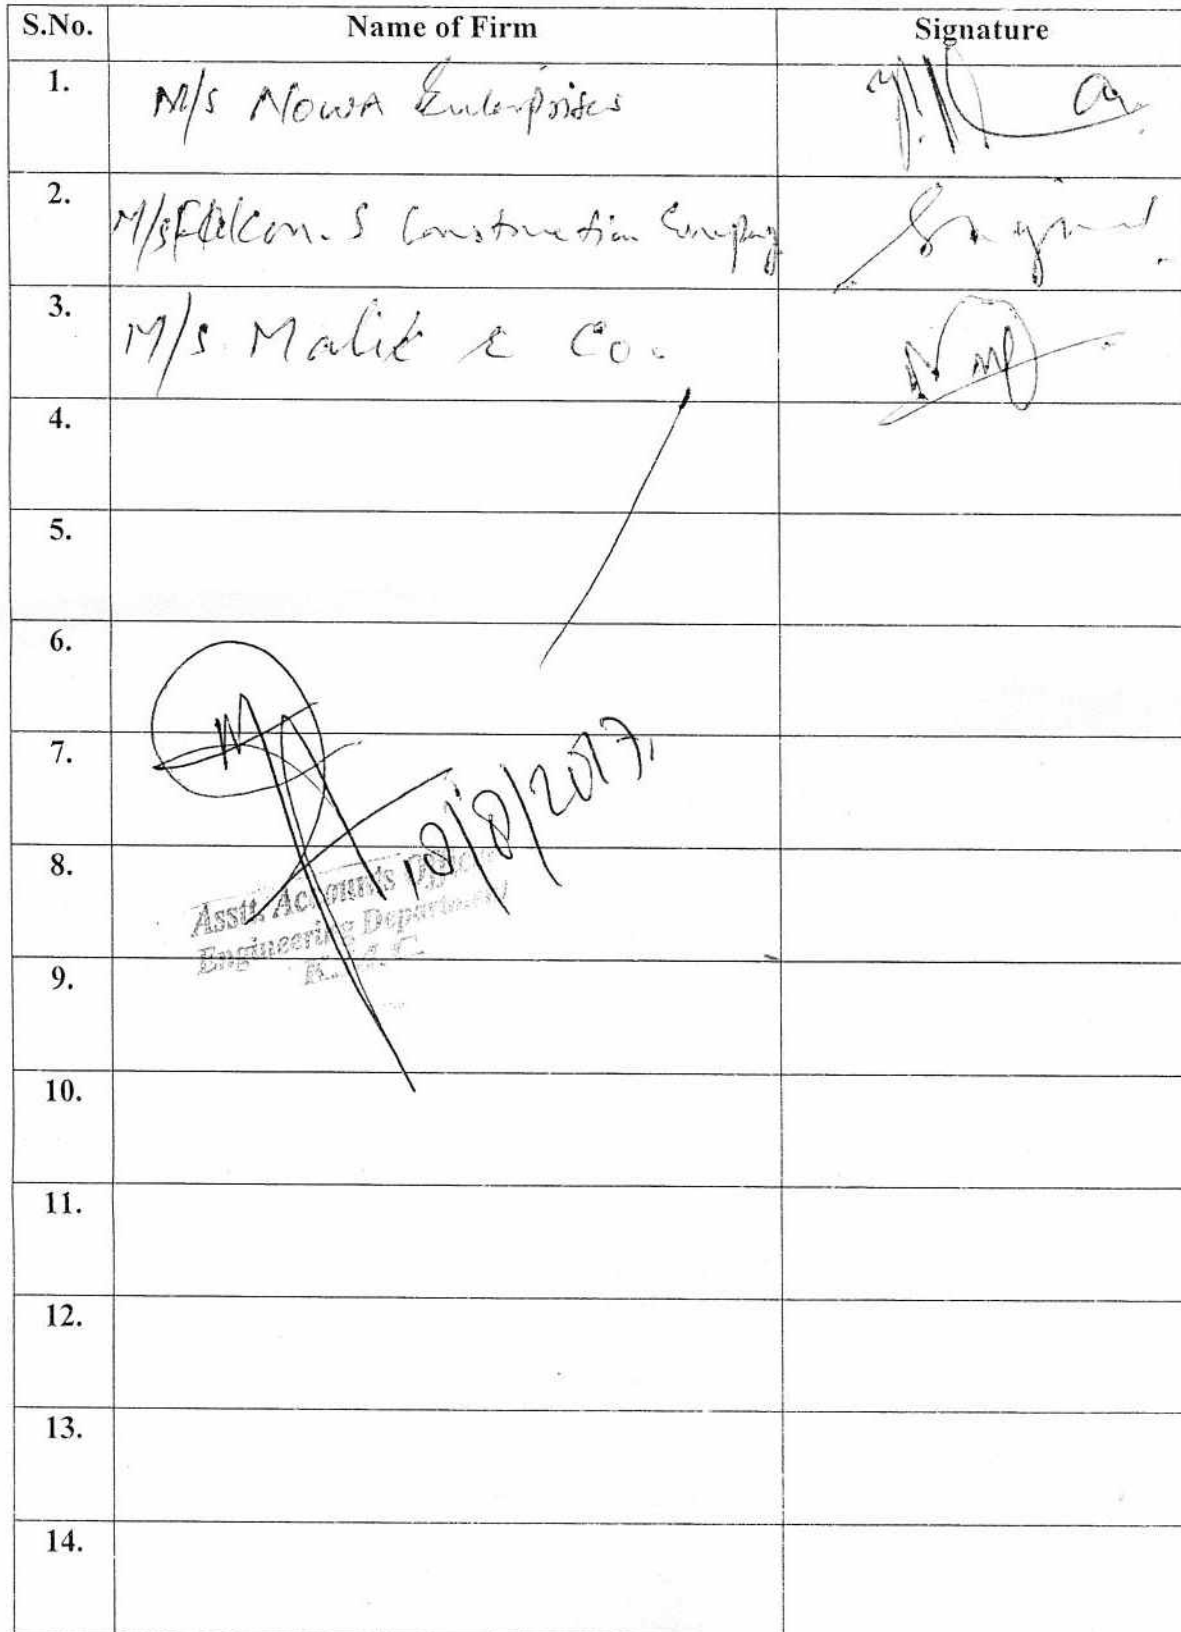 S.No. Name of Firm Signature
1. M/s NOWA Enterprises
2. M/s Falcon. S Construction Company
3. M/s Malik & Co.
4.
5.
6.
7.
18/8/2017.
8.
Asstt. Accounts Officer
Engineering Department
K.M.C.
9.
10.
11.
12.
13.
14.